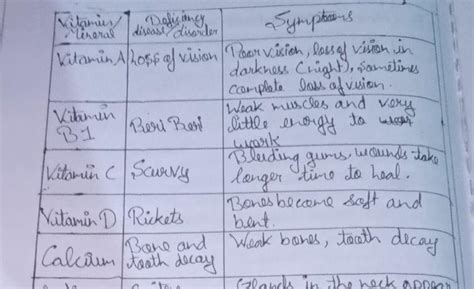 Vitamin/ Mineral | Deficiency disease/disorder | Symptoms
Vitamin A | Loss of vision | Poor vision, loss of vision in
darkness (night), sometimes
complete loss of vision.
Vitamin B1 | Beri Beri | Weak muscles and very
little energy to
work
Vitamin C | Scurvy | Bleeding gums, wounds take
longer time to heal.
Vitamin D | Rickets | Bones become soft and
bent.
Calcium | Bone and tooth decay | Weak bones, tooth decay
Glands in the neck appear